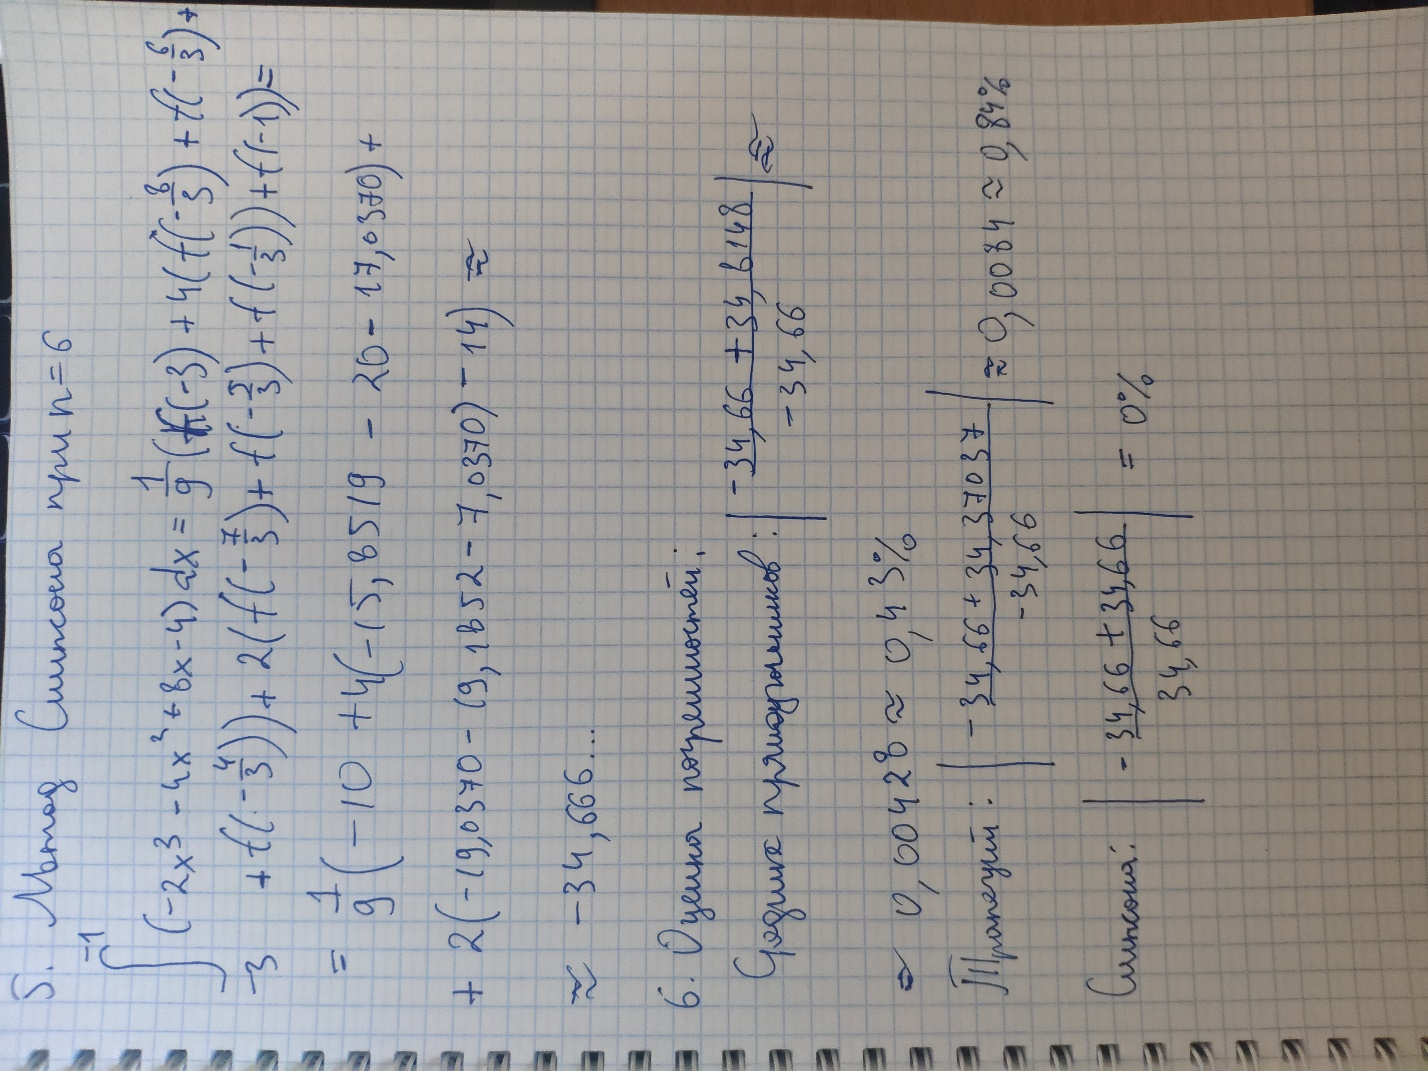 5. Метод Симпсона при n=6
∫_{-3}^{-1} (-2x³ - 4x² + 8x - 4) dx = 1/9 (f(-3) + 4(f(-8/3) + f(-6/3) +
+ f(-4/3)) + 2(f(-7/3) + f(-2/3) + f(-1/3)) + f(-1)) =
= 1/9 (-10 + 4(-15,8519 - 20 - 17,0370) +
+ 2(-19,0370 - 19,1852 - 7,0370) - 14) ≈
≈ -34,666...
6. Оценка погрешностей:
Средних прямоугольников: |(-34,66 + 34,8148)/(-34,66)| ≈
≈ 0,00428 ≈ 0,43%
Трапеций: |(-34,66 + 34,37037)/(-34,66)| ≈ 0,0084 ≈ 0,84%
Симпсона: |(-34,66 + 34,66)/34,66| = 0%